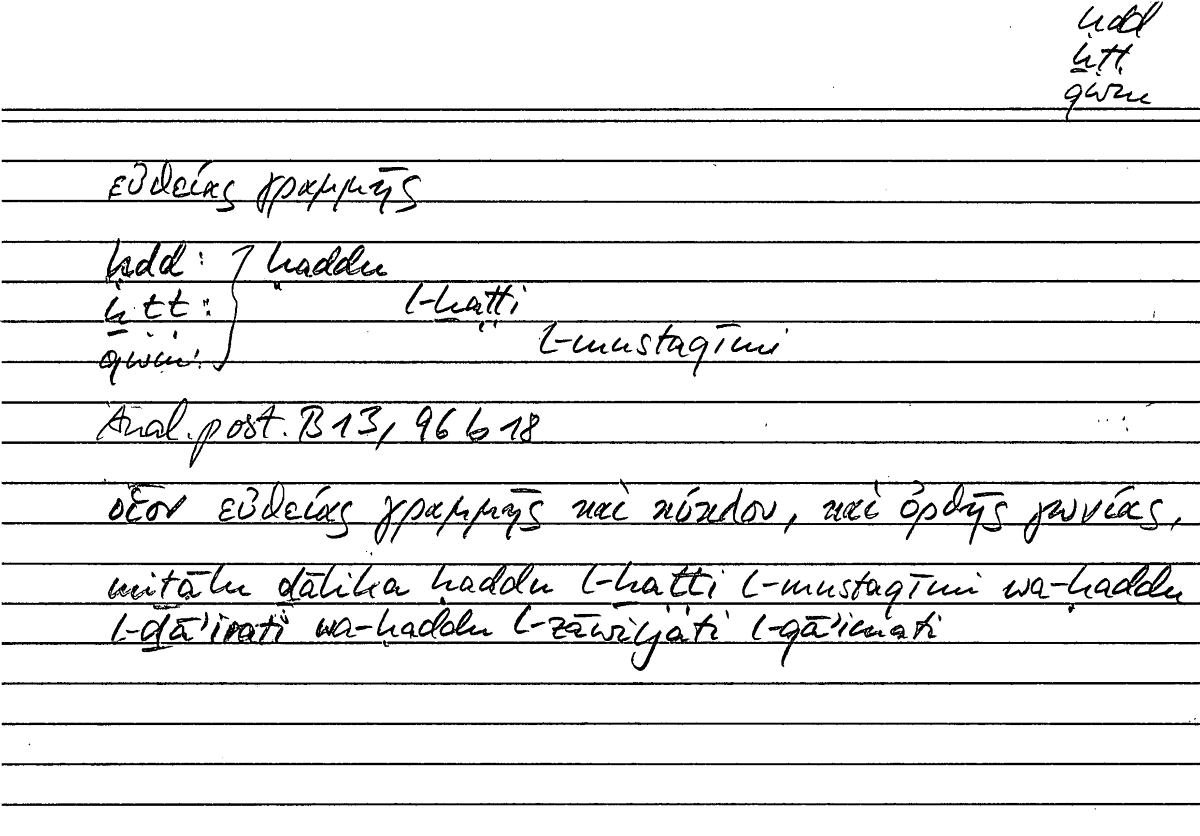 ḥdd
ḫṭṭ
qwm
εὐθείας γραμμῆς
ḥdd : } ḥaddu
ḫṭṭ : l-ḫaṭṭi
qwm : l-mustaqīmi
Anal. post. B 13, 96 b 18
οἷον εὐθείας γραμμῆς καὶ κύκλου, καὶ ὀρθῆς γωνίας,
miṯālu ḏālika ḥaddu l-ḫaṭṭi l-mustaqīmi wa-ḥaddu
l-ḏā’irati wa-ḥaddu l-zāwiyati l-qā’imati